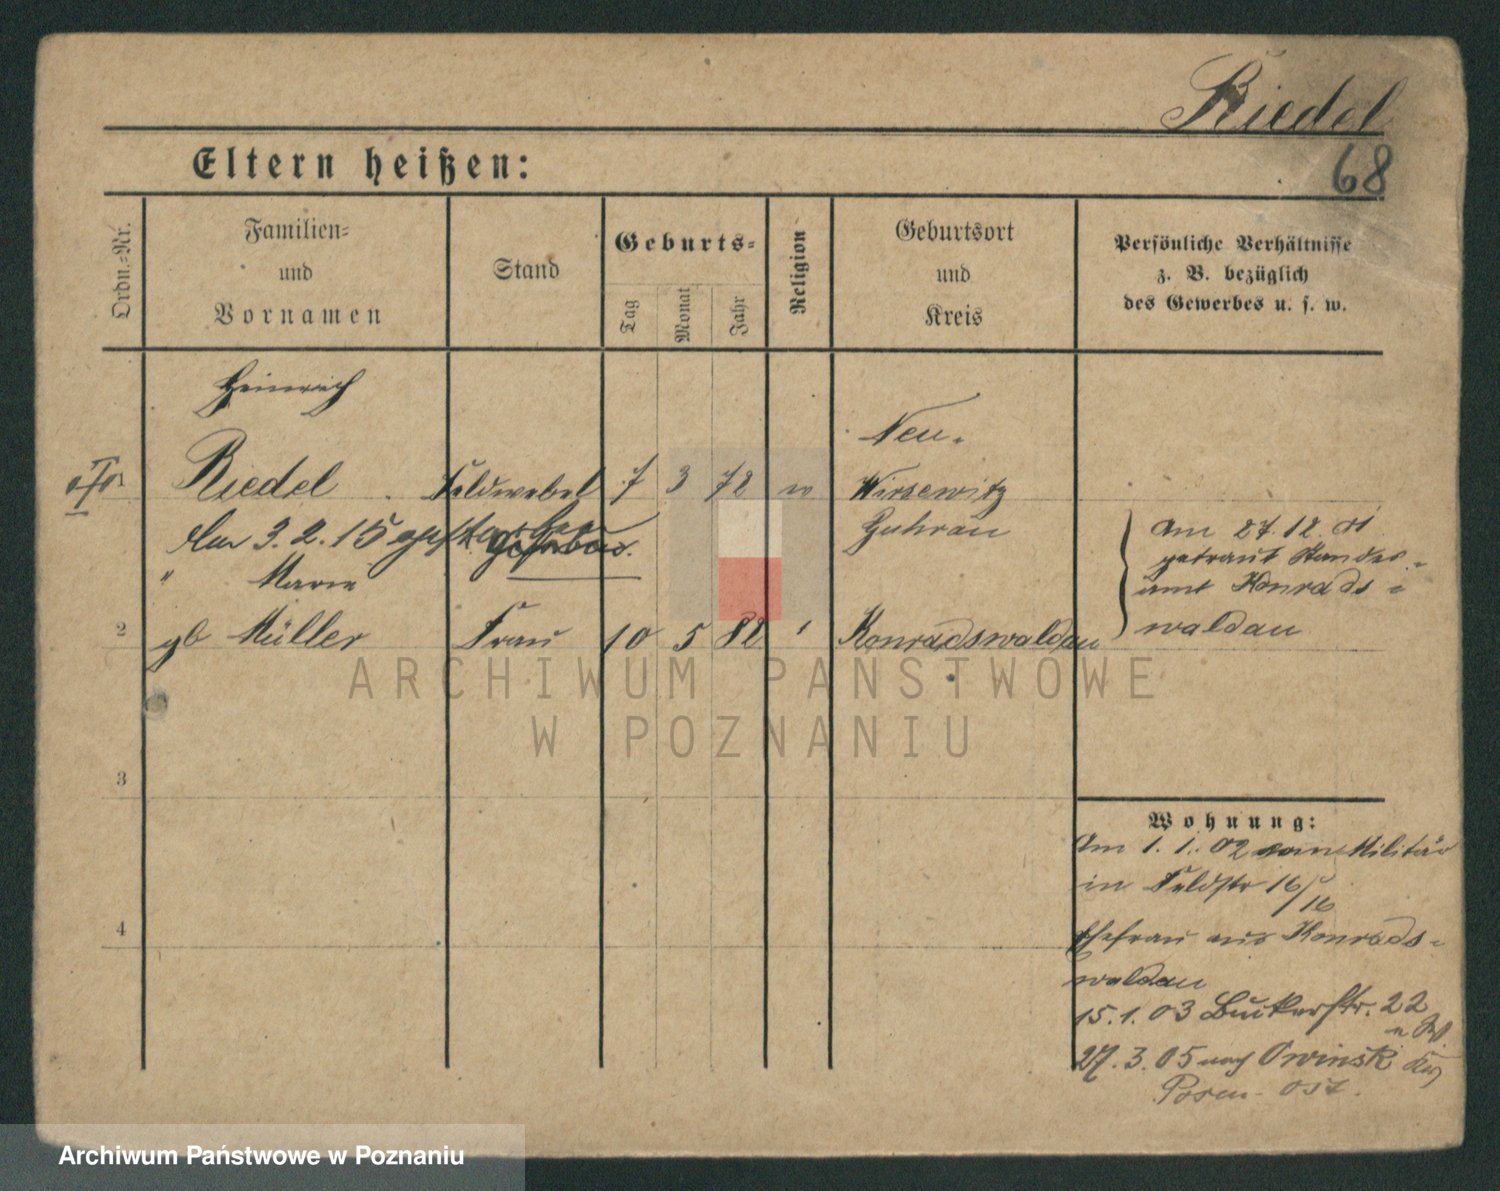 Riedel
68
Eltern heißen:
Ordn.-Nr.
Familien-
und
Vornamen
Stand
Geburts-
Tag
Monat
Jahr
Religion
Geburtsort
und
Kreis
Persönliche Verhältnisse
z. B. bezüglich
des Gewerbes u. s. w.
Heinrich
Riedel Feldwebel 7 3 72
Neu-
Wirsewitz
Guhrau
Am 3. 2. 15 gestorben.
" Marie
2 gb Müller Frau 10 5 82 " Konradswaldau
Am 27. 12. 01
getraut Standes-
amt Konrads-
waldau
3
4
Wohnung:
Am 1. 1. 02 vom Militär
in Feldstr 16/
16
Ehefrau aus Konrads-
waldau
15. 1. 03 Bukerstr. 22
27. 3. 05 nach Owinsk
Posen-Ost.
ARCHIWUM PAŃSTWOWE
W POZNANIU
Archiwum Państwowe w Poznaniu